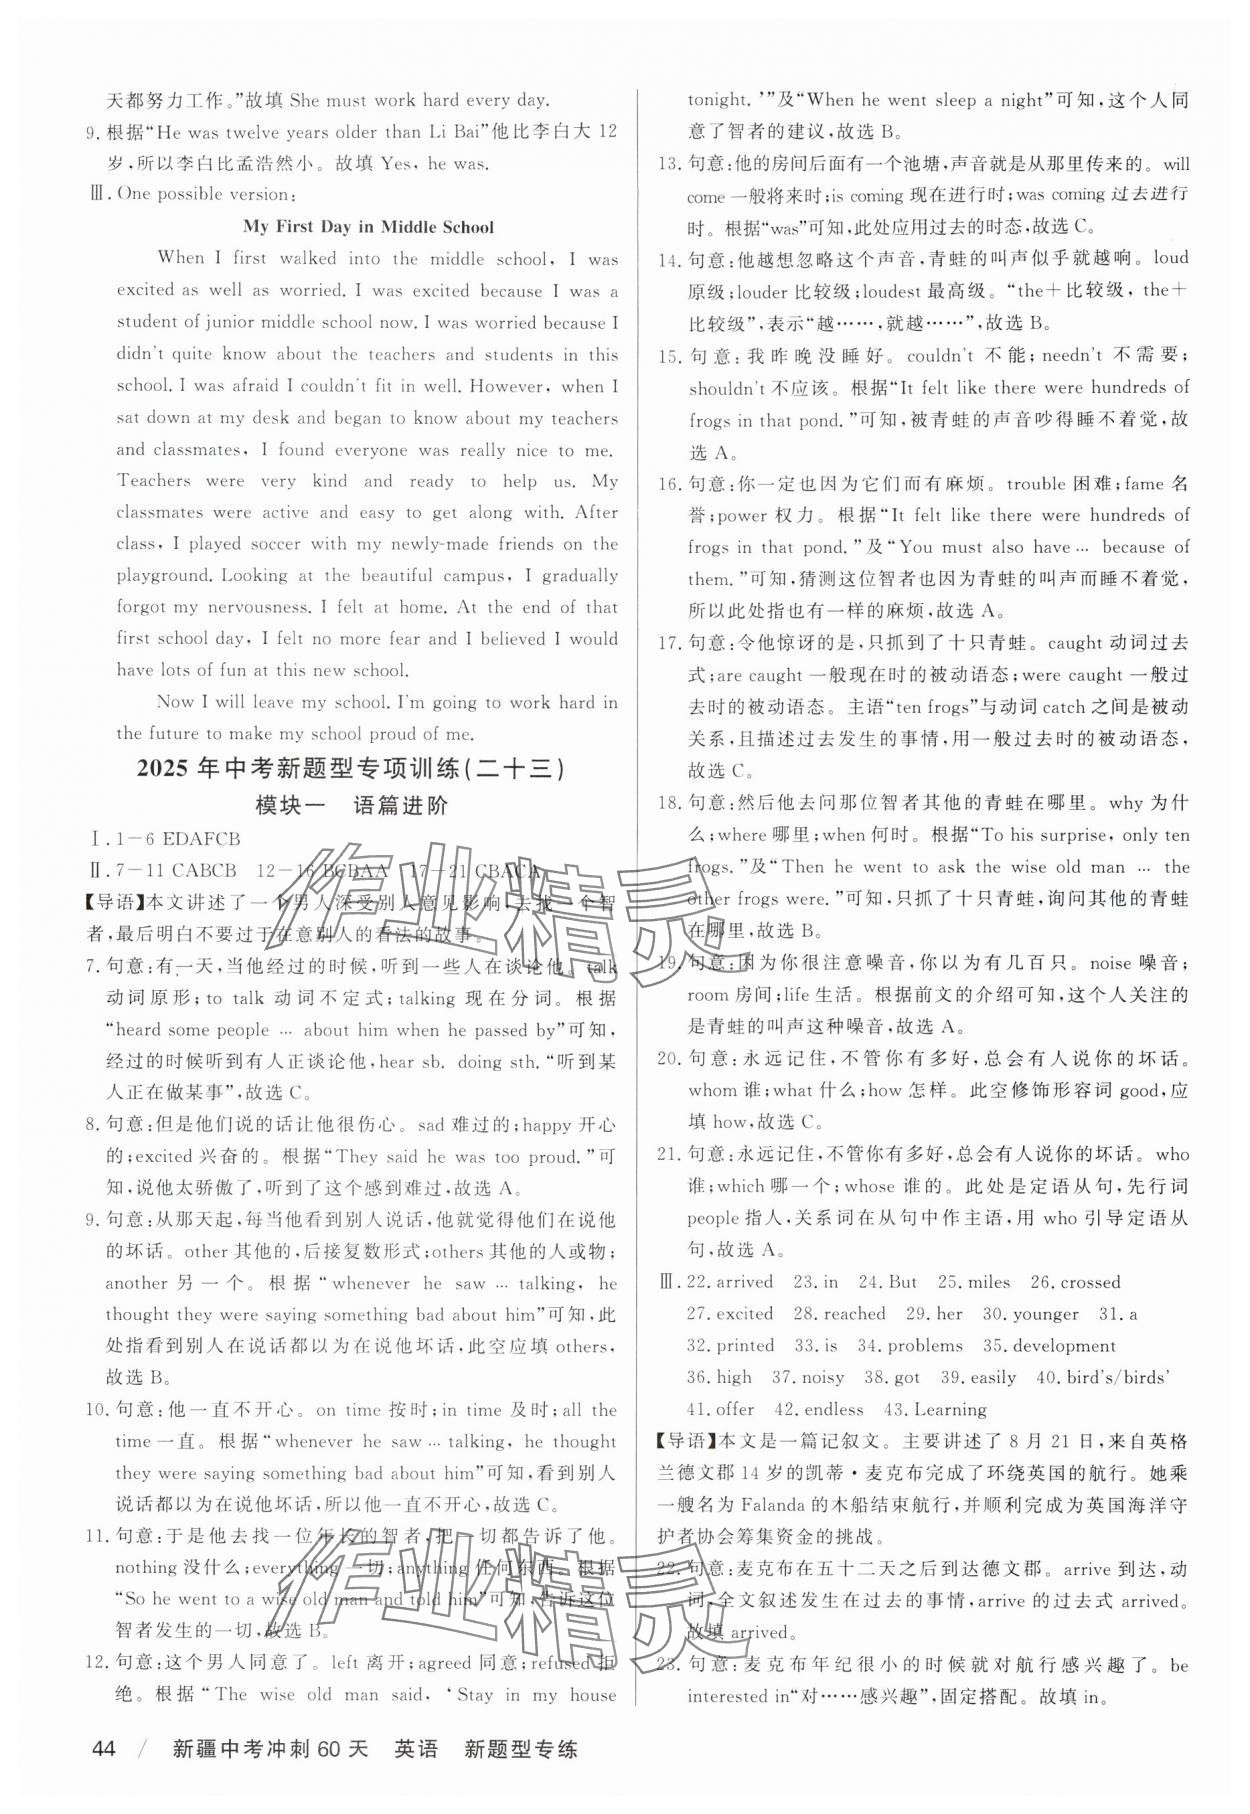 天都努力工作。"故填 She must work hard every day.
9. 根据"He was twelve years older than Li Bai"他比李白大 12
岁,所以李白比孟浩然小。故填 Yes, he was.
Ⅲ. One possible version:
My First Day in Middle School
When I first walked into the middle school, I was
excited as well as worried. I was excited because I was a
student of junior middle school now. I was worried because I
didn't quite know about the teachers and students in this
school. I was afraid I couldn't fit in well. However, when I
sat down at my desk and began to know about my teachers
and classmates, I found everyone was really nice to me.
Teachers were very kind and ready to help us. My
classmates were active and easy to get along with. After
class, I played soccer with my newly-made friends on the
playground. Looking at the beautiful campus, I gradually
forgot my nervousness. I felt at home. At the end of that
first school day, I felt no more fear and I believed I would
have lots of fun at this new school.
Now I will leave my school. I'm going to work hard in
the future to make my school proud of me.
2025 年中考新题型专项训练(二十三)
模块一 语篇进阶
Ⅰ. 1-6 EDAFCB
Ⅱ. 7-11 CABCB 12-16 BCBAA 17-21 CBACA
【导语】本文讲述了一个男人深受别人意见影响,去找一个智
者,最后明白不要过于在意别人的看法的故事。
7. 句意:有一天,当他经过的时候,听到一些人在谈论他。talk
动词原形;to talk 动词不定式;talking 现在分词。根据
"heard some people … about him when he passed by"可知,
经过的时候听到有人正谈论他,hear sb. doing sth."听到某
人正在做某事",故选 C。
8. 句意:但是他们说的话让他很伤心。sad 难过的;happy 开心
的;excited 兴奋的。根据"They said he was too proud."可
知,说他太骄傲了,听到了这个感到难过,故选 A。
9. 句意:从那天起,每当他看到别人说话,他就觉得他们在说他
的坏话。other 其他的,后接复数形式;others 其他的人或物;
another 另一个。根据"whenever he saw … talking, he
thought they were saying something bad about him"可知,此
处指看到别人在说话都以为在说他坏话,此空应填 others,
故选 B。
10. 句意:他一直不开心。on time 按时;in time 及时;all the
time 一直。根据"whenever he saw … talking, he thought
they were saying something bad about him"可知,看到别人
说话都以为在说他坏话,所以他一直不开心,故选 C。
11. 句意:于是他去找一位年长的智者,把一切都告诉了他。
nothing 没什么;everything 一切;anything 任何东西。根据
"So he went to a wise old man and told him"可知,告诉这位
智者发生的一切,故选 B。
12. 句意:这个男人同意了。left 离开;agreed 同意;refused 拒
绝。根据"The wise old man said, 'Stay in my house
tonight.'"及"When he went sleep a night"可知,这个人同
意了智者的建议,故选 B。
13. 句意:他的房间后面有一个池塘,声音就是从那里传来的。will
come 一般将来时;is coming 现在进行时;was coming 过去进行
时。根据"was"可知,此处应用过去的时态,故选 C。
14. 句意:他越想忽略这个声音,青蛙的叫声似乎就越响。loud
原级;louder 比较级;loudest 最高级。"the+比较级,the+
比较级",表示"越……,就越……",故选 B。
15. 句意:我昨晚没睡好。couldn't 不能;needn't 不需要;
shouldn't 不应该。根据"It felt like there were hundreds of
frogs in that pond."可知,被青蛙的声音吵得睡不着觉,故
选 A。
16. 句意:你一定也因为它们而有麻烦。trouble 困难;fame 名
誉;power 权力。根据"It felt like there were hundreds of
frogs in that pond."及"You must also have … because of
them."可知,猜测这位智者也因为青蛙的叫声而睡不着觉,
所以此处指也有一样的麻烦,故选 A。
17. 句意:令他惊讶的是,只抓到了十只青蛙。caught 动词过去
式;are caught 一般现在时的被动语态;were caught 一般过
去时的被动语态。主语"ten frogs"与动词 catch 之间是被动
关系,且描述过去发生的事情,用一般过去时的被动语态,
故选 C。
18. 句意:然后他去问那位智者其他的青蛙在哪里。why 为什
么;where 哪里;when 何时。根据"To his surprise, only ten
frogs."及"Then he went to ask the wise old man … the
other frogs were."可知,只抓了十只青蛙,询问其他的青蛙
在哪里,故选 B。
19. 句意:因为你很注意噪音,你以为有几百只。noise 噪音;
room 房间;life 生活。根据前文的介绍可知,这个人关注的
是青蛙的叫声这种噪音,故选 A。
20. 句意:永远记住,不管你有多好,总会有人说你的坏话。
whom 谁;what 什么;how 怎样。此空修饰形容词 good,应
填 how,故选 C。
21. 句意:永远记住,不管你有多好,总会有人说你的坏话。who
谁;which 哪一个;whose 谁的。此处是定语从句,先行词
people 指人,关系词在从句中作主语,用 who 引导定语从
句,故选 A。
Ⅲ. 22. arrived 23. in 24. But 25. miles 26. crossed
27. excited 28. reached 29. her 30. younger 31. a
32. printed 33. is 34. problems 35. development
36. high 37. noisy 38. got 39. easily 40. bird's/birds'
41. offer 42. endless 43. Learning
【导语】本文是一篇记叙文。主要讲述了 8 月 21 日,来自英格
兰德文郡 14 岁的凯蒂·麦克布完成了环绕英国的航行。她乘
一艘名为 Falanda 的木船结束航行,并顺利完成为英国海洋守
护者协会筹集资金的挑战。
22. 句意:麦克布在五十二天之后到达德文郡。arrive 到达,动
词,全文叙述发生在过去的事情,arrive 的过去式 arrived。
故填 arrived。
23. 句意:麦克布年纪很小的时候就对航行感兴趣了。be
interested in"对……感兴趣",固定搭配。故填 in。
44 / 新疆中考冲刺 60 天 英语 新题型专练
作业精灵
作业精灵